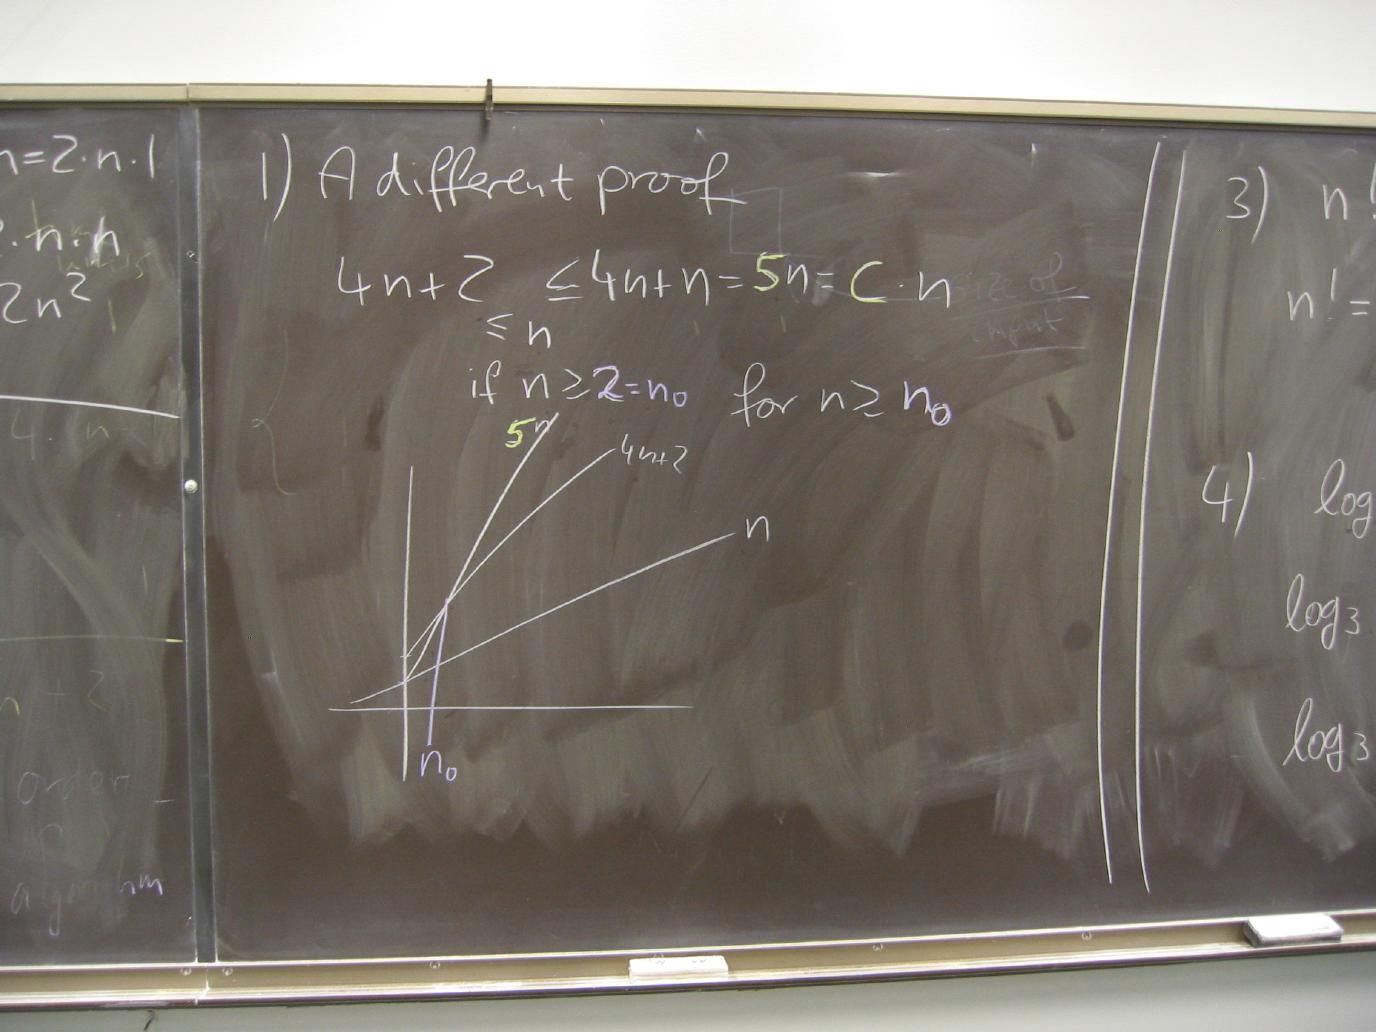 n=2·n·1
·n·n
2n²
4·n
n+2
order
algorithm
1) A different proof
4n+2 ≤ 4n+n = 5n = C·n
≤ n
if n ≥ 2 = n₀ for n ≥ n₀
5n
4n+2
n
n₀
size of
input
3) n!
n! =
4) log
log₃
log₃